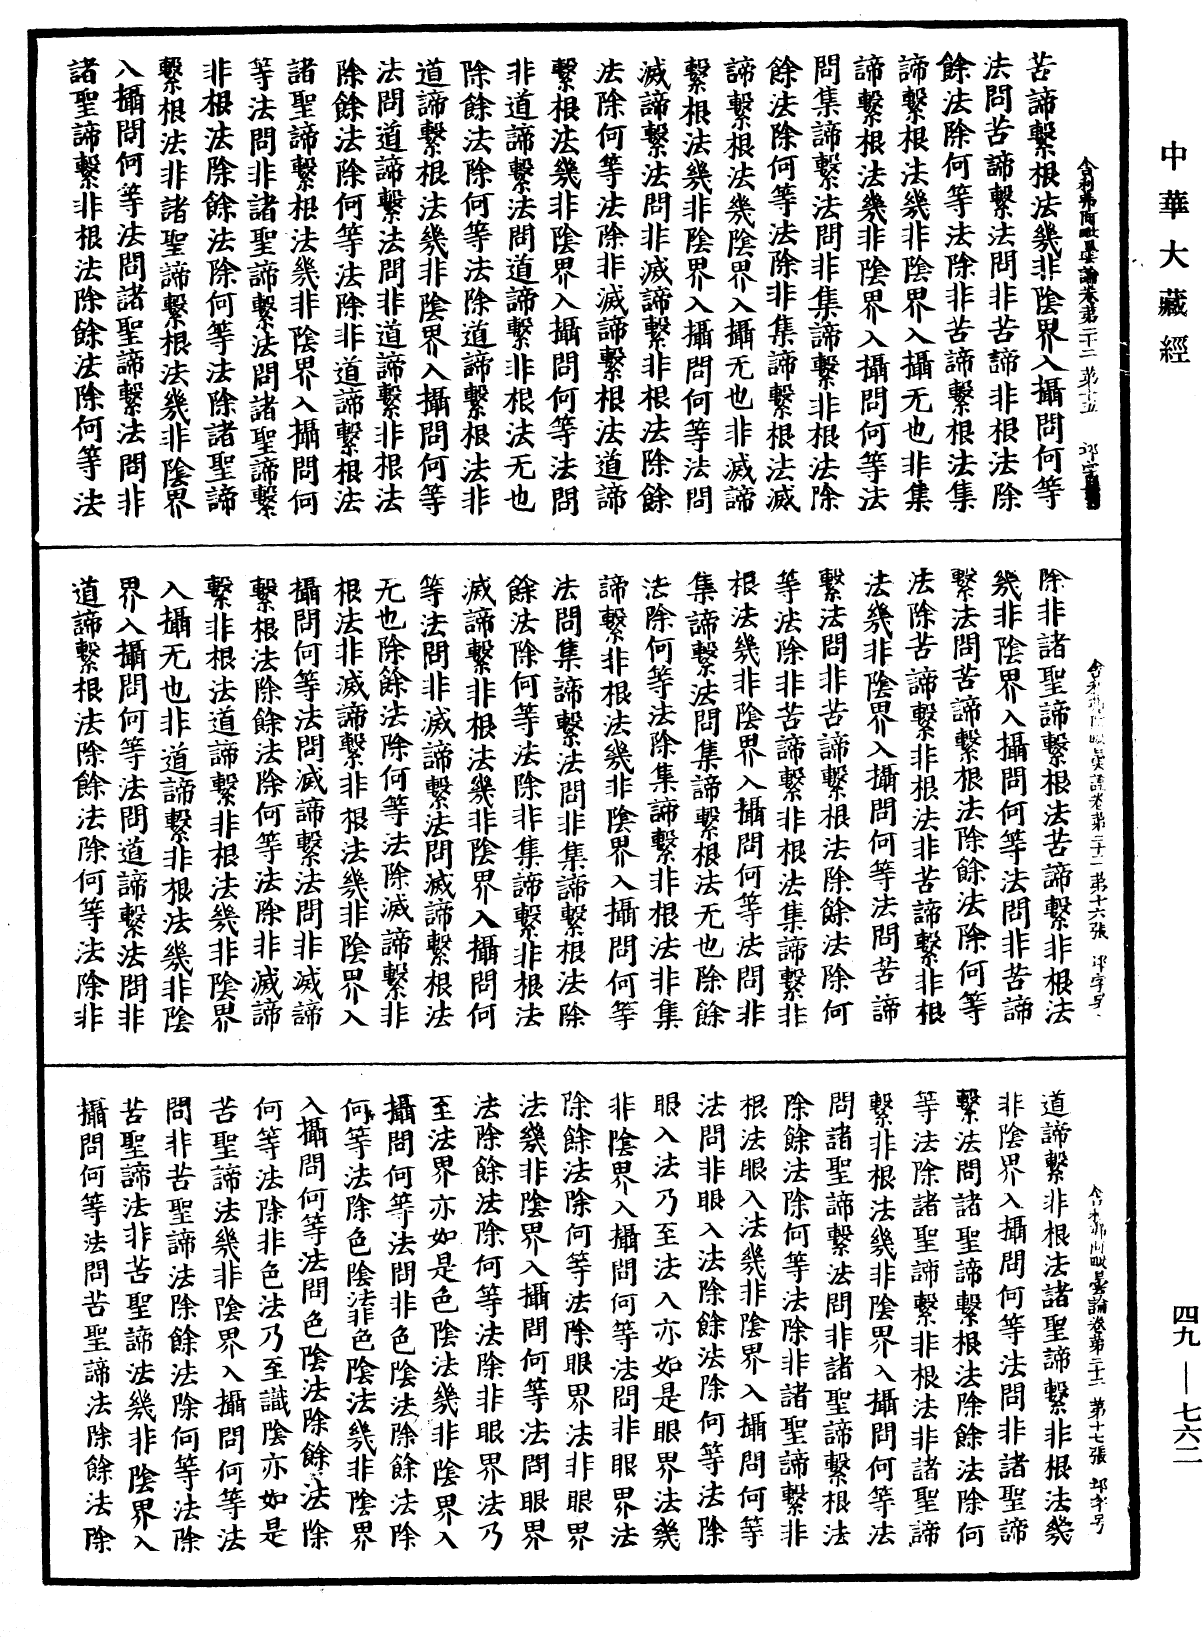 中華大藏經
舍利弗阿毗曇論卷第二十二 第十五
苦諦繫根法幾非陰界入攝問何等
法問苦諦繫法問非苦諦非根法除
餘法除何等法除非苦諦繫根法集
諦繫根法幾非陰界入攝无也非集
諦繫根法幾非陰界入攝問何等法
問集諦繫法問非集諦繫非根法除
餘法除何等法除非集諦繫根法滅
諦繫根法幾陰界入攝无也非滅諦
繫根法幾非陰界入攝問何等法問
滅諦繫法問非滅諦繫非根法除餘
法除何等法除非滅諦繫根法道諦
繫根法幾非陰界入攝問何等法問
非道諦繫法問道諦繫非根法无也
除餘法除何等法除道諦繫根法非
道諦繫根法幾非陰界入攝問何等
法問道諦繫法問非道諦繫非根法
除餘法除何等法除非道諦繫根法
諸聖諦繫根法幾非陰界入攝問何
等法問非諸聖諦繫法問諸聖諦繫
非根法除餘法除何等法除諸聖諦
繫根法非諸聖諦繫根法幾非陰界
入攝問何等法問諸聖諦繫法問非
諸聖諦繫非根法除餘法除何等法
舍利弗阿毗曇論卷第二十二 第十六張
除非諸聖諦繫根法苦諦繫非根法
幾非陰界入攝問何等法問非苦諦
繫法問苦諦繫根法除餘法除何等
法除苦諦繫非根法非苦諦繫非根
法幾非陰界入攝問何等法問苦諦
繫法問非苦諦繫根法除餘法除何
等法除非苦諦繫非根法集諦繫非
根法幾非陰界入攝問何等法問非
集諦繫法問集諦繫根法无也除餘
法除何等法除集諦繫非根法非集
諦繫非根法幾非陰界入攝問何等
法問集諦繫法問非集諦繫根法除
餘法除何等法除非集諦繫非根法
滅諦繫非根法幾非陰界入攝問何
等法問非滅諦繫法問滅諦繫根法
无也除餘法除何等法除滅諦繫非
根法非滅諦繫非根法幾非陰界入
攝問何等法問滅諦繫法問非滅諦
繫根法除餘法除何等法除非滅諦
繫非根法道諦繫非根法幾非陰界
入攝无也非道諦繫非根法幾非陰
界入攝問何等法問道諦繫法問非
道諦繫根法除餘法除何等法除非
舍利弗阿毗曇論卷第二十二 第十七張
道諦繫非根法諸聖諦繫非根法幾
非陰界入攝問何等法問非諸聖諦
繫法問諸聖諦繫根法除餘法除何
等法除諸聖諦繫非根法非諸聖諦
繫非根法幾非陰界入攝問何等法
問諸聖諦繫法問非諸聖諦繫根法
除餘法除何等法除非諸聖諦繫非
根法眼入法幾非陰界入攝問何等
法問非眼入法除餘法除何等法除
眼入法乃至法入亦如是眼界法幾
非陰界入攝問何等法問非眼界法
除餘法除何等法除眼界法非眼界
法幾非陰界入攝問何等法問眼界
法除餘法除何等法除非眼界法乃
至法界亦如是色陰法幾非陰界入
攝問何等法問非色陰法除餘法除
何等法除色陰法非色陰法幾非陰界
入攝問何等法問色陰法除餘法除
何等法除非色法乃至識陰亦如是
苦聖諦法幾非陰界入攝問何等法
問非苦聖諦法除餘法除何等法除
苦聖諦法非苦聖諦法幾非陰界入
攝問何等法問苦聖諦法除餘法除
四九—七六二